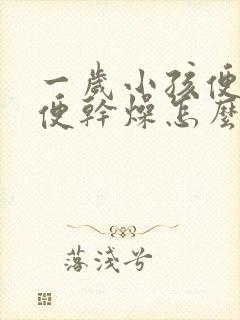 一歲小孩便
便幹燥怎麼
落淺兮